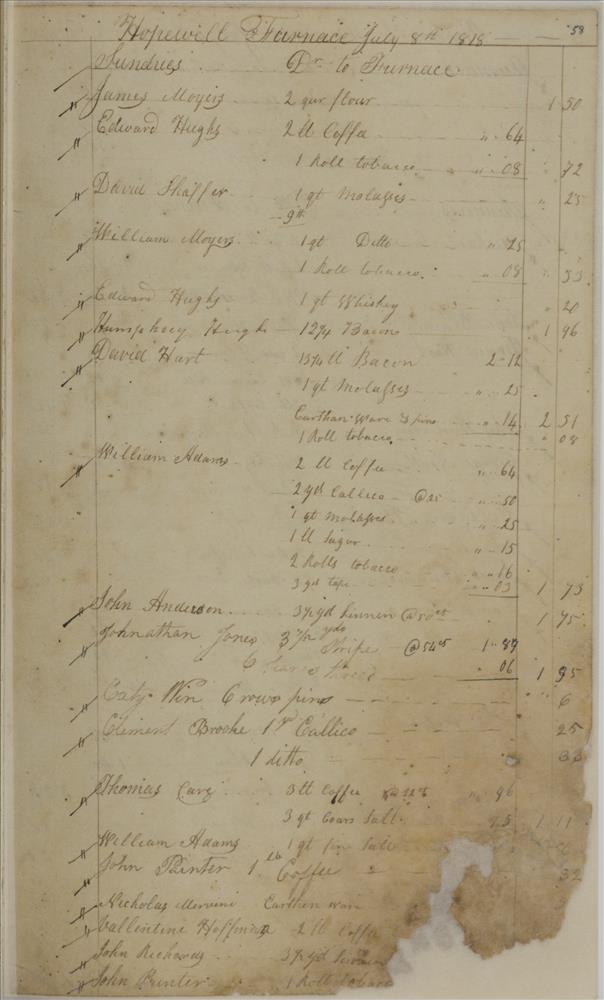 Hopewell Furnace July 8th 1818 59
Sundries Dr to Furnace
James Moyers 2 qur flour 1 50
Edward Hughs 2 lb Coffee " 64
1 Roll tobacco " 08 " 72
David Shaffer 1 qt Molasses " 25
9th
William Moyers 1 qt Ditto " 25
1 Roll tobacco " 08 " 33
Edward Hughs 1 qt Whiskey " 20
Humphrey Hughs 12¼ Bacon 1 96
David Hart Bacon 2-12
1 qt Molasses " 25
Earthan Ware & pins " 14 2 51
1 Roll tobacco " 08
William Adams 2 lb Coffee " 64
2 yd Callico @25 " 50
1 qt Molasses " 25
1 lb Sugar " 15
2 Rolls tobacco " 16
3 yd tape " 03 1 73
John Anderson 3½ yd Linnen @ 50 cts 1 75
Johnathan Jones 3½ yds Stripe @54 cts 1 89
6 thread 06 1 95
Caty Win Crows pins 6
Climent Brooke 1 yd Callico 25
1 ditto 33
Thomas Care 3 lb Coffee 32 " 96
3 qt Coars Salt 15 1 11
William Adams 1 qt fin Salt
John Painter 1 lb Coffee 32
Nicholas Mervine Earthen ware
Vallentine Hoffman 2 lb Coffee
John Richards 3½ yd Linnen
John Painter 1 Roll tobacco